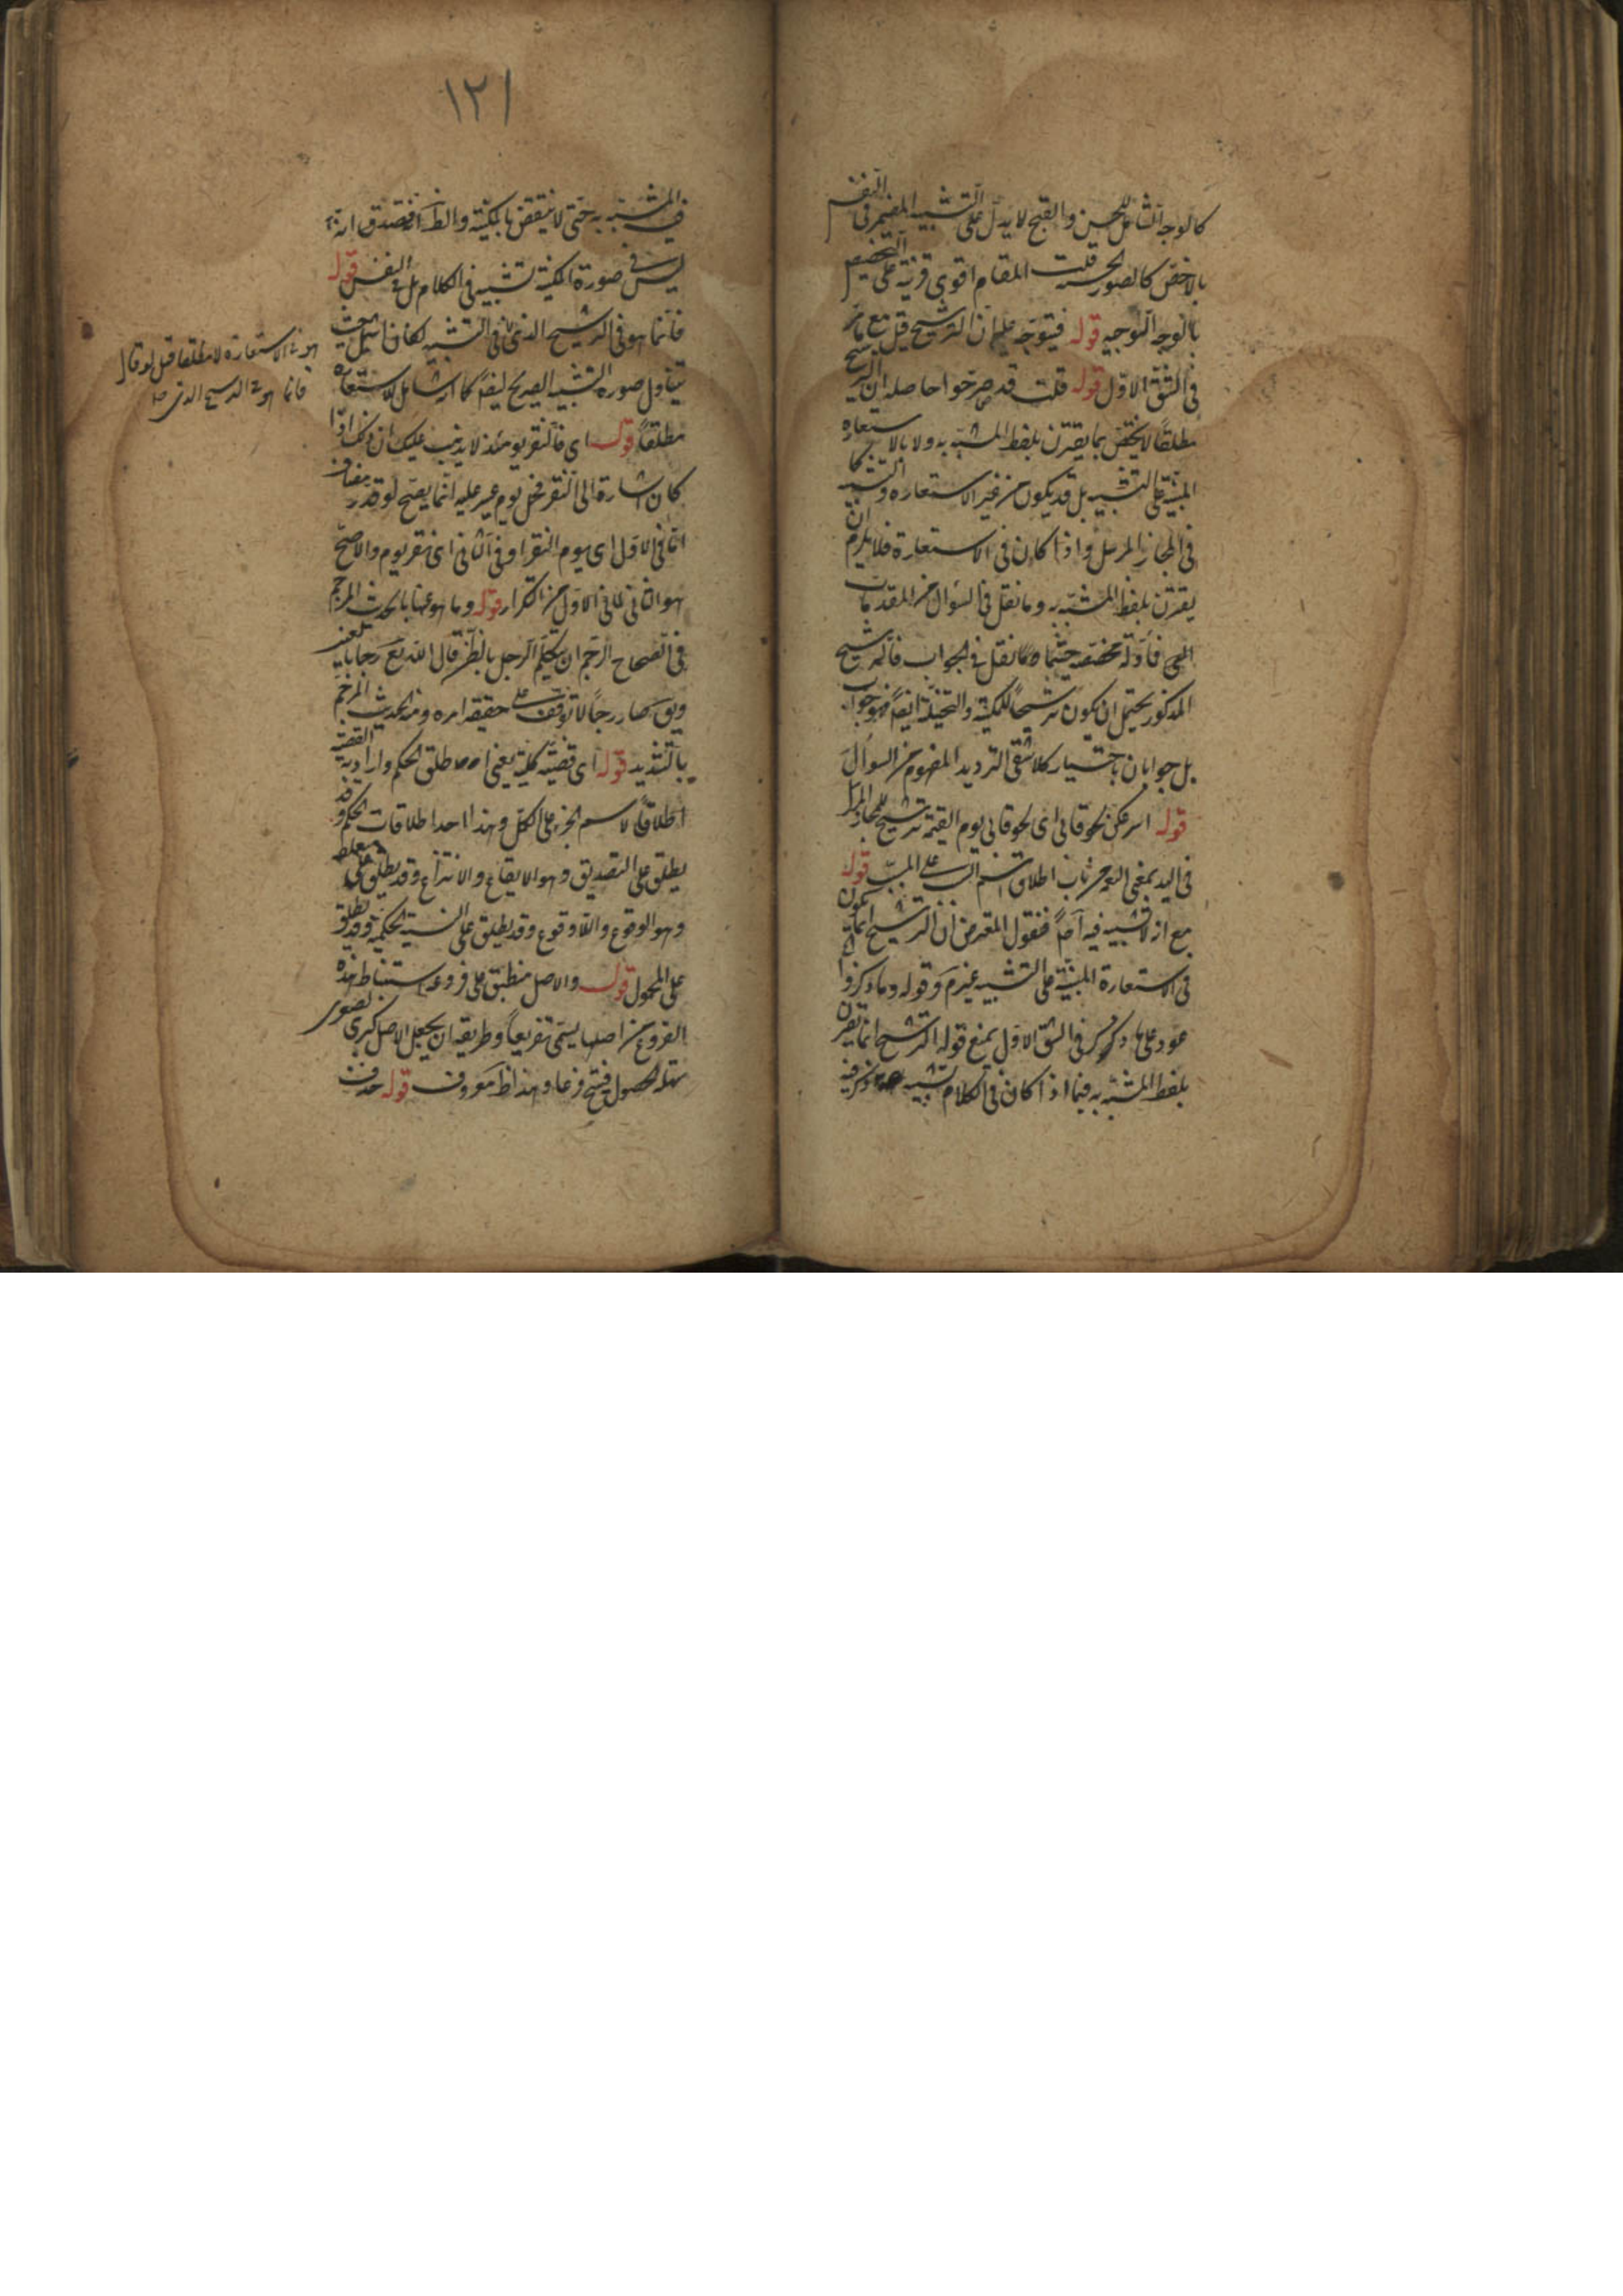 كالوجه الشامل للحسن والقبح لا يدل على التشبيه المضمر فى النفس
بالاخص كالصور الحسنة قلت المقام اقوى قرينة على التخصيص
بالوجه الوجيه قوله فيتوجه عليه ان الترشيح قيل مع ما مر
فى الشق الاول قوله قلت قد صرحوا حاصله ان الترشيح
مطلقا لا يختص بما يقترن بلفظ المشبه به ولا بالاستعارة
المبنية على التشبيه بل قد يكون من غير الاستعارة والتشبيه كما
فى المجاز المرسل واذا كان فى الاستعارة فلا يلزم ان
يقترن بلفظ المشبه به وما نقل فى السؤال من المقدمات
فى الجواب فالترشيح
المذكور يحتمل ان يكون ترشيحا للمكنية والتخييلية ايضا فهو جواب
بل جوابان باختيار كلا شقى الترديد المفهوم من السؤال
قوله اسرعكن لحوقا بى اى لحوقا بى يوم القيمة ترشيح للمجاز المرسل
فى اليد بمعنى من باب اطلاق اسم السبب على المسبب قوله
مع ان لا تشبيه فيه آه فنقول المعترض ان الترشيح انما يكون
فى الاستعارة المبنية على التشبيه غيرم وقوله وما ذكروا
عود على ما ذكر فى الشق الاول بمنع قوله الترشيح انما يقترن
بلفظ المشبه به فيما اذا كان فى الكلام تشبيه
١٢١
فى المشبه به حتى لا ينتقض بالمكنية والظ
ليس فى صورة المكنية تشبيه فى الكلام بل فى النفس قوله
فانما هو فى الترشيح الذى فى التشبيه لكان اشمل حيث
يتناول صورة التشبيه الصريح ايضا كما الاستعارة
مطلقا قوله اى فالنقر يومئذ لا يذهب عليك ان ذلك اذا
كان اشارة الى النقر فحمل يوم عسير عليه انما يصح لو قدر مضاف
اما فى الاول اى يوم النقر او فى الثانى اى نقر يوم والاصح
هو الثانى لما فى الاول من التكرار قوله وما هو عنها بالحديث المرجم
فى الصحاح الرجم ان يتكلم الرجل بالظن قال الله تع رجما بالغيب
ويق صار رجما لا توقف على حقيقة امره ومنه الحديث المرجم
بالتشديد قوله اى قضية كلية يعنى اطلق الحكم واراد به القضية
اطلاقا لاسم الجزء على الكل وهذا احد اطلاقات الحكم وقد
يطلق على التصديق وهو الايقاع والانتزاع وقد يطلق على متعلقه
وهو الوقوع واللاوقوع وقد يطلق على النسبة الحكمية وقد يطلق
على المحمول قوله والاصل منطبق على فروعه استنباط هذه
الفروع من اصلها يسمى تفريعا وطريقه ان يجعل الاصل كبرى لصغرى
سهلة الحصول فينتج فرعا وهذا ظ معروف قوله حذف
هو فى الاستعارة لا مطلقا قيل لو قال
فانما هو فى الترشيح الذى